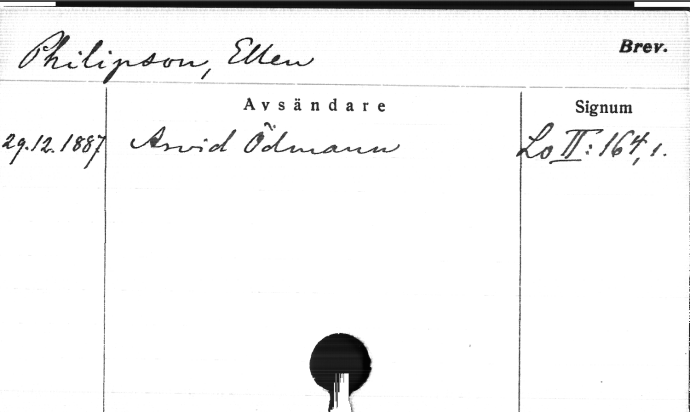 Philipson, Ellen
Brev.
Avsändare
Signum
29.12.1887 Arvid Ödmann Lo II: 164,1.